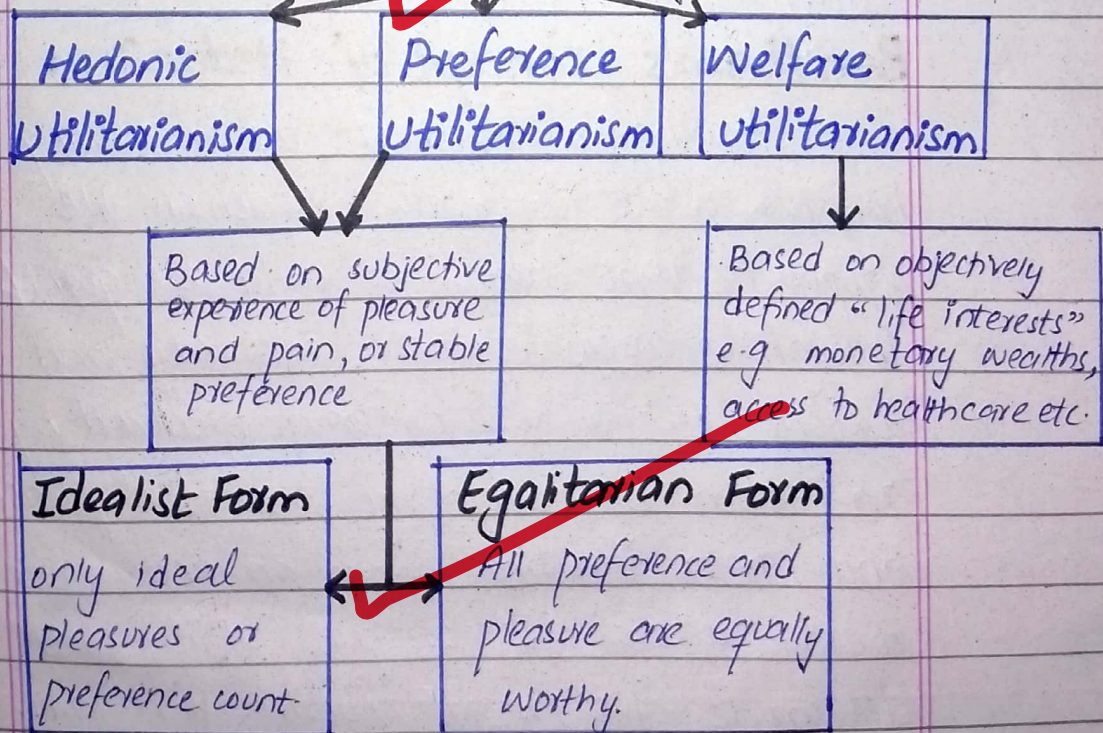 Hedonic
Utilitarianism
Preference
Utilitarianism
Welfare
Utilitarianism
Based on subjective
experience of pleasure
and pain, or stable
preference
Based on objectively
defined "life interests"
e.g monetary wealths,
access to healthcare etc.
Idealist Form
only ideal
pleasures or
preference count.
Egalitarian Form
All preference and
pleasure are equally
worthy.